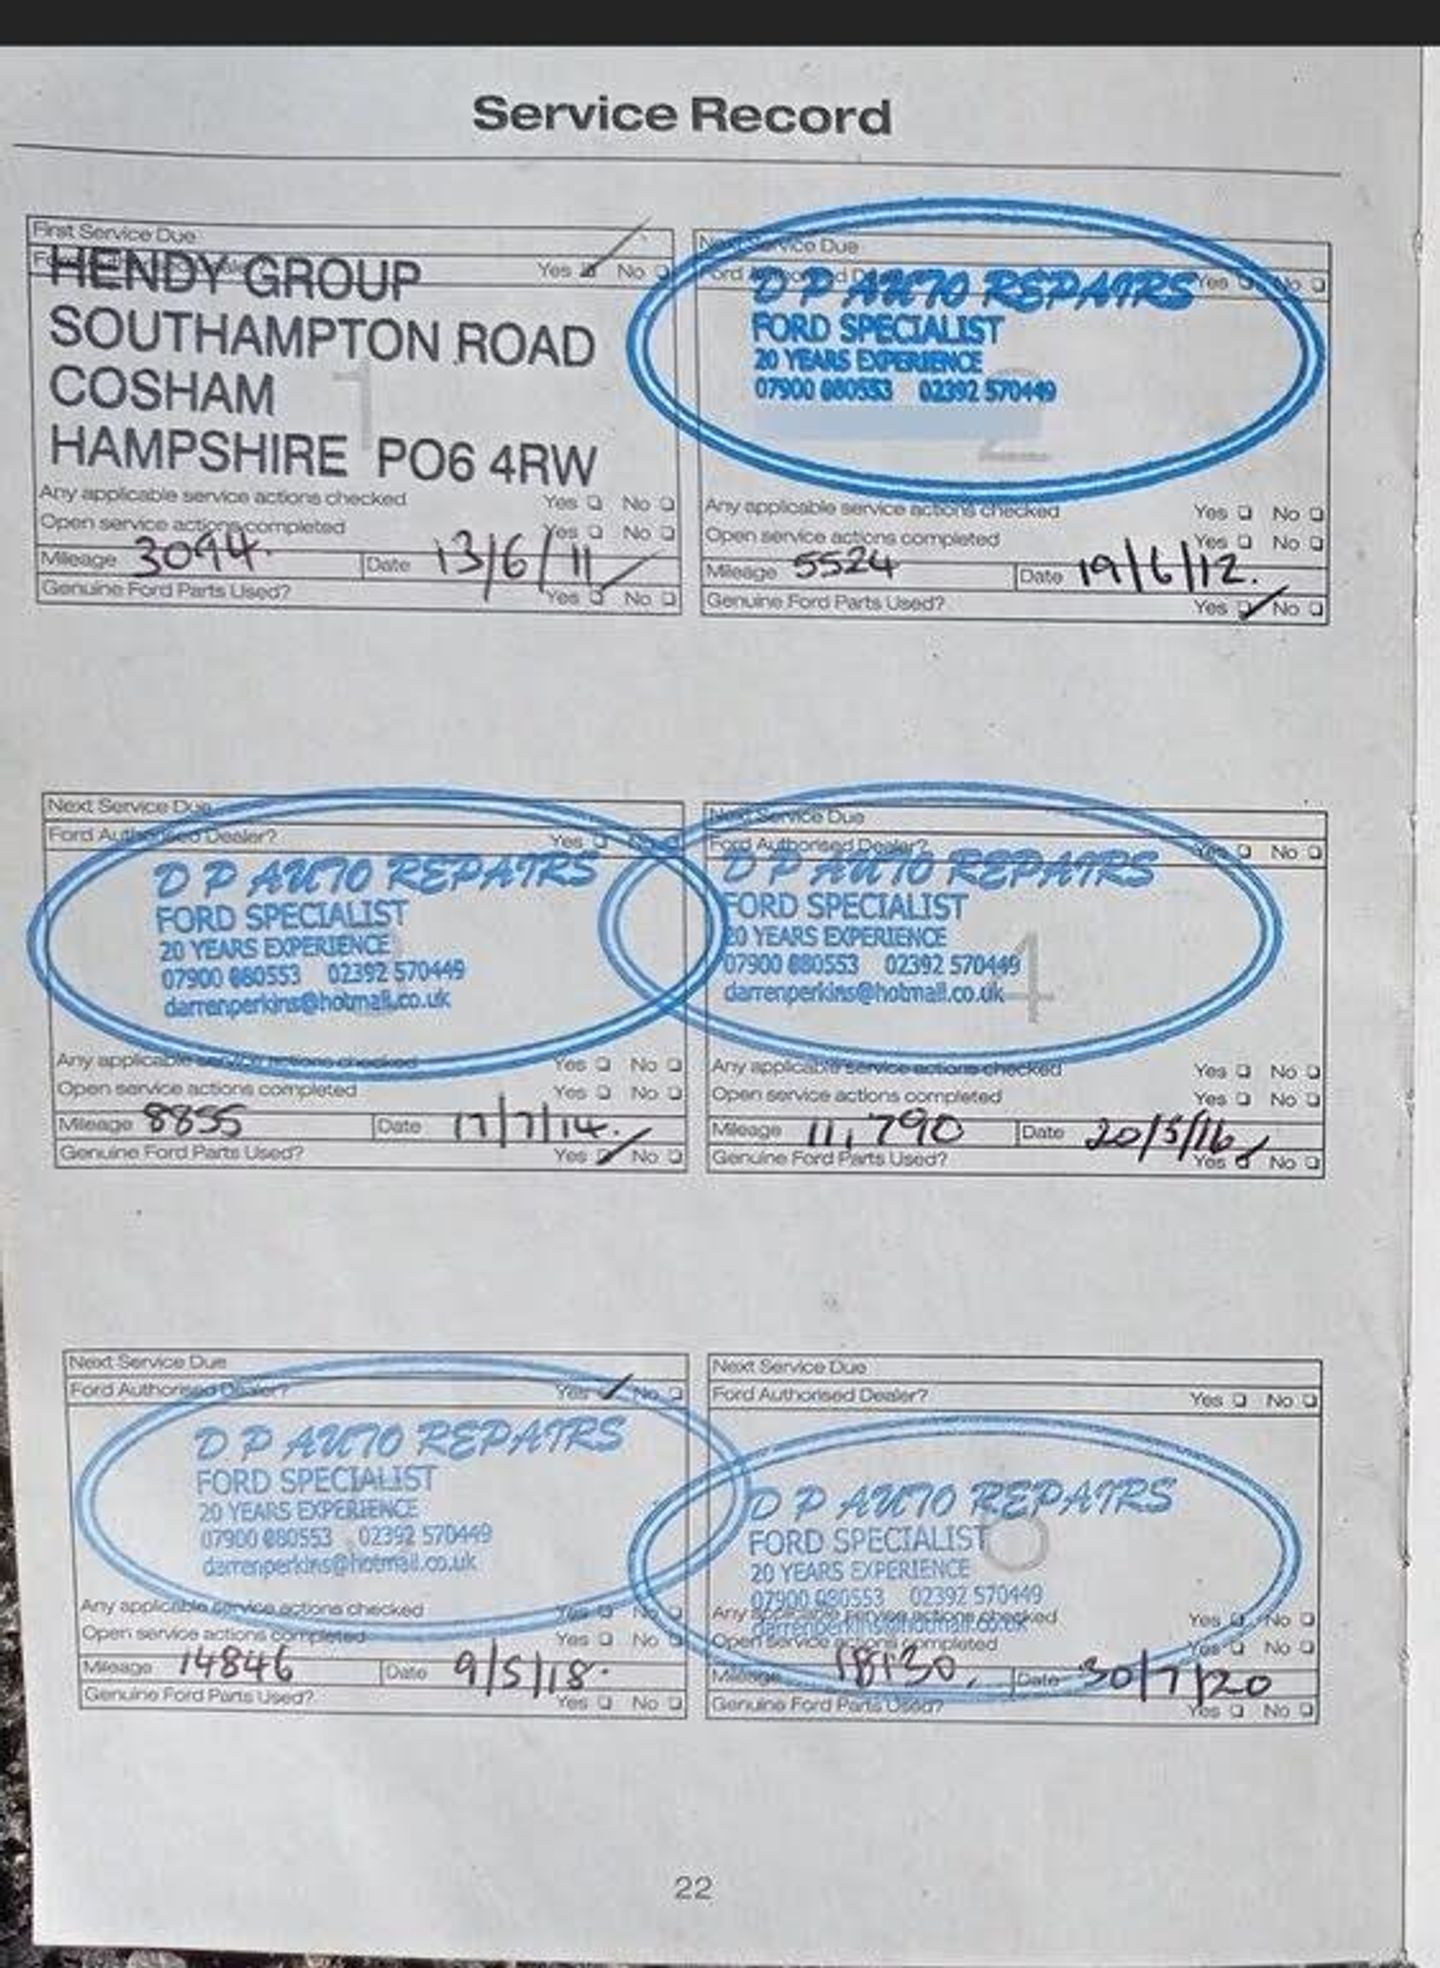 Service Record
First Service Due
Yes No
HENDY GROUP
SOUTHAMPTON ROAD
COSHAM
HAMPSHIRE PO6 4RW
1
Any applicable service actions checked Yes No
Open service actions completed Yes No
Mileage 3094. Date 13/6/11
Genuine Ford Parts Used? Yes No
Next Service Due
Ford Authorised Yes No
D P AUTO REPAIRS
FORD SPECIALIST
20 YEARS EXPERIENCE
07900 880553 02392 570449
2
Any applicable service actions checked Yes No
Open service actions completed Yes No
Mileage 5524 Date 19/6/12.
Genuine Ford Parts Used? Yes No
Next Service Due
Ford Authorised Dealer? Yes No
D P AUTO REPAIRS
FORD SPECIALIST
20 YEARS EXPERIENCE
07900 880553 02392 570449
darrenperkins@hotmail.co.uk
Any applicable service actions checked Yes No
Open service actions completed Yes No
Mileage 8855 Date 17/7/14.
Genuine Ford Parts Used? Yes No
Next Service Due
Ford Authorised Dealer? Yes No
D P AUTO REPAIRS
FORD SPECIALIST
20 YEARS EXPERIENCE
07900 880553 02392 570449
darrenperkins@hotmail.co.uk
4
Any applicable service actions checked Yes No
Open service actions completed Yes No
Mileage 11,790 Date 20/5/16
Genuine Ford Parts Used? Yes No
Next Service Due
Ford Authorised Dealer? Yes No
D P AUTO REPAIRS
FORD SPECIALIST
20 YEARS EXPERIENCE
07900 880553 02392 570449
darrenperkins@hotmail.co.uk
Any applicable service actions checked Yes No
Open service actions completed Yes No
Mileage 14846 Date 9/5/18.
Genuine Ford Parts Used? Yes No
Next Service Due
Ford Authorised Dealer? Yes No
D P AUTO REPAIRS
FORD SPECIALIST
20 YEARS EXPERIENCE
07900 880553 02392 570449
darrenperkins@hotmail.co.uk
Any applicable service actions checked Yes No
Open service actions completed Yes No
Mileage 18130. Date 30/7/20
Genuine Ford Parts Used? Yes No
22